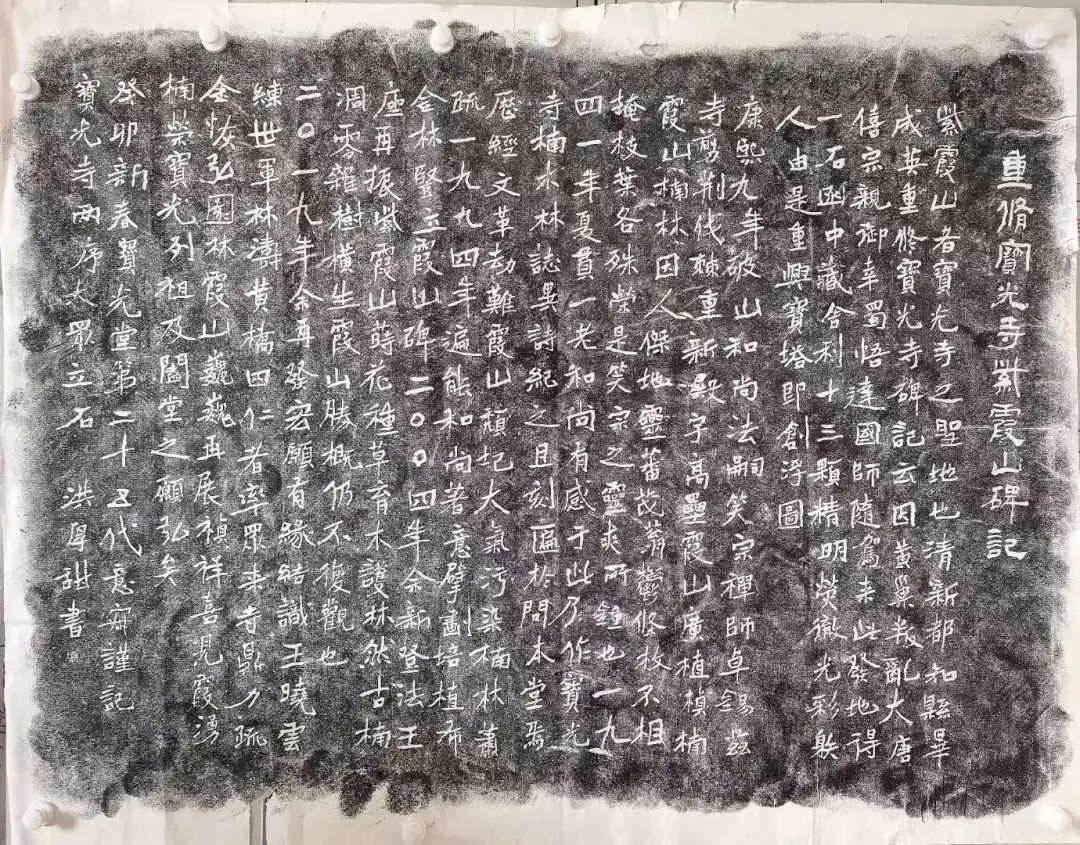 重脩寶光寺紫霞山碑記
紫霞山者寶光寺之聖地也清新都知縣畢
成英重修寶光寺碑記云因黃巢叛亂大唐
僖宗親御幸蜀悟達國師隨駕来此發地得
一石函中藏舍利十三顆精明熒徹光彩
人由是重興寶塔即創浮圖
康熙九年破山和尚法嗣笑宗禪師卓錫茲
寺剪荆伐棘重新殿宇高壘霞山廣植楨楠
霞山楠林因人傑地靈蕃茂蓊鬱條枚不相
掩枝葉各殊榮是笑宗之靈爽所鐘也一九
四一年夏貫一老和尚有感于此乃作寶光
寺楠木林誌異詩紀之且刻匾於問本堂焉
歷經文革劫難霞山頹圮大氣污染楠林蕭
疏一九九四年遍能和尚著意擘劃培植希
金林豎立霞山碑二〇〇四年余新登法王
座再振紫霞山蒔花種草育木護林然古楠
凋零雜樹橫生霞山勝概仍不復觀也
二〇一九年余再發宏願有緣結識王曉雲
練世軍林濤黄橋四仁者率眾来寺鼎力疏
全恢弘園林霞山巍巍再展禎祥喜見霞湧
楠榮寶光列祖及闔堂之願弘矣
癸卯新春寶光堂第二十五代意寂謹記
寶光寺两序大眾立石 洪厚甜書